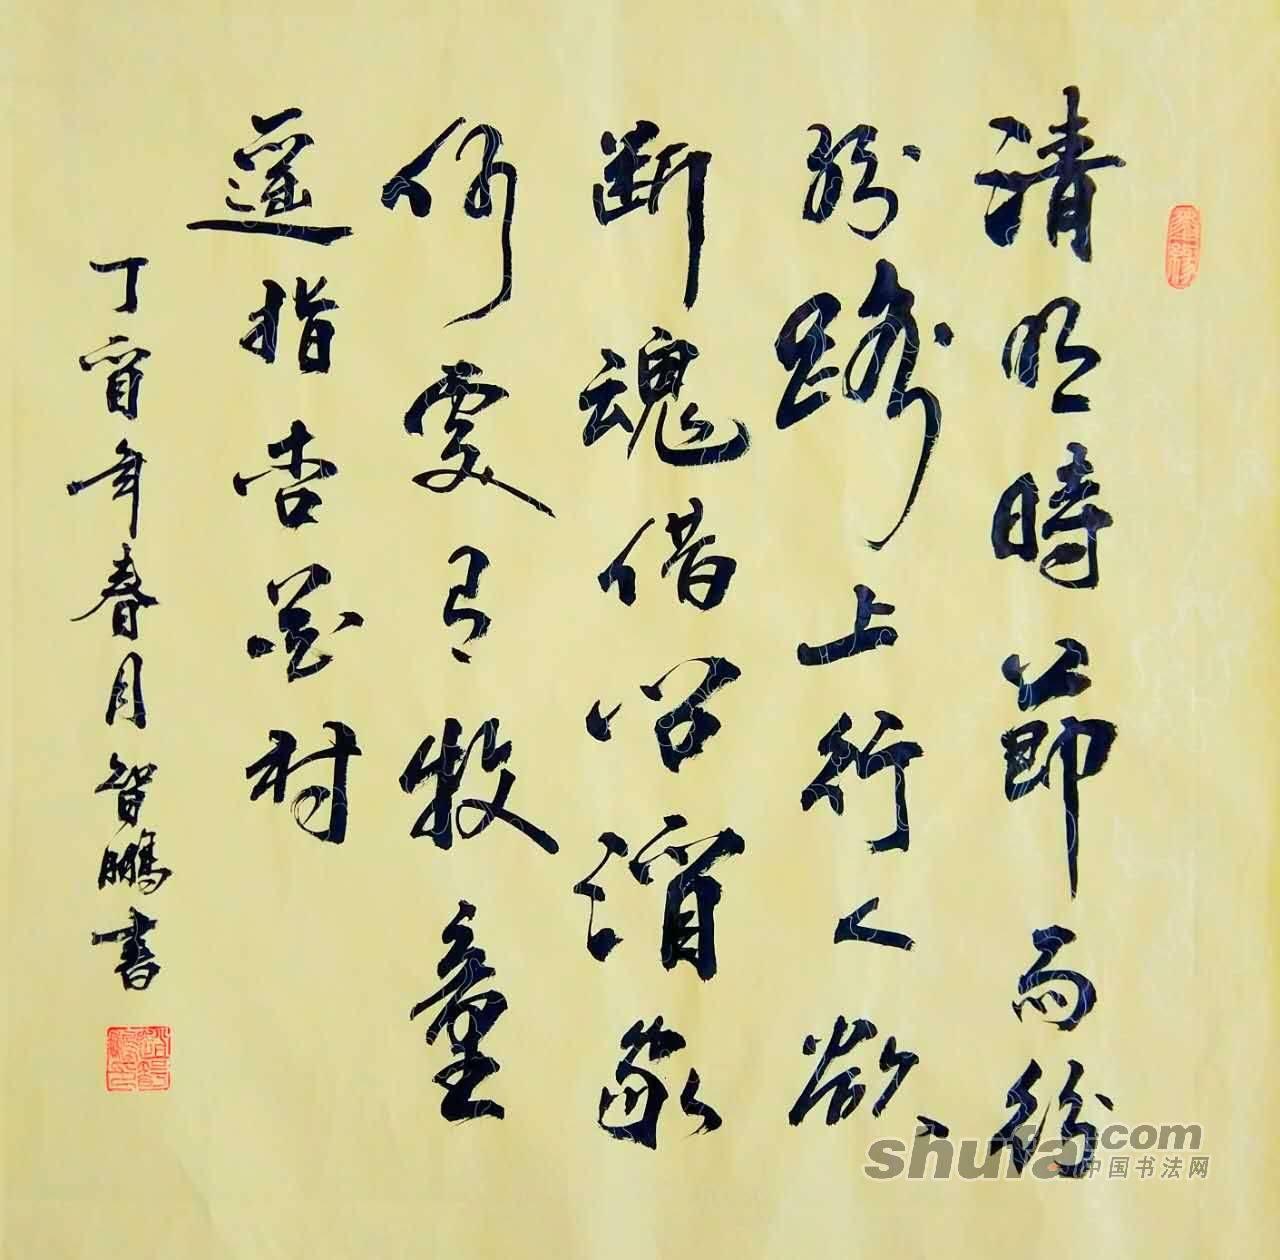 清明時節雨紛
紛路上行人欲
断魂借問酒家
何處有牧童
遥指杏花村
丁酉年春月智鵬書
shufa.com
中国书法网